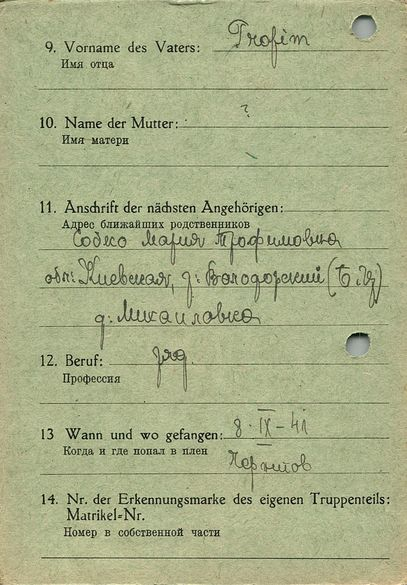 9. Vorname des Vaters: Trofim
Имя отца
10. Name der Mutter: ?
Имя матери
11. Anschrift der nächsten Angehörigen:
Адрес ближайших родственников
Мария Трофимовна
обл: Киевская, р:
д: Михайловка
12. Beruf:
Профессия
13 Wann und wo gefangen: 8-IX-41
Когда и где попал в плен
14. Nr. der Erkennungsmarke des eigenen Truppenteils:
Matrikel-Nr.
Номер в собственной части